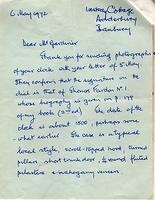 6 May 1992
Cottage
Adderbury
Banbury
Dear Mr Gardiner
Thank you for sending photographs
of your clock with your letter of 5 May.
I then confirm that the signature on the
dial is that of Thomas Pardon No 1
whose biography is given on p. 199
of my book (2nd ed). The date of the
clock is about 1800, perhaps some-
what earlier. The case is a typical
local style, scroll-topped hood, turned
pillars, short trunk door, turned fluted
pilasters & mahogany veneers